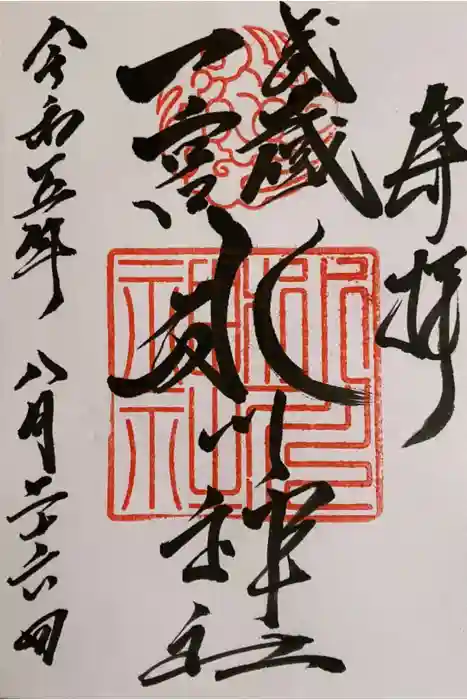 奉拝
武蔵
一宮
氷川神社
令和五年 八月二十六日
氷川
神社